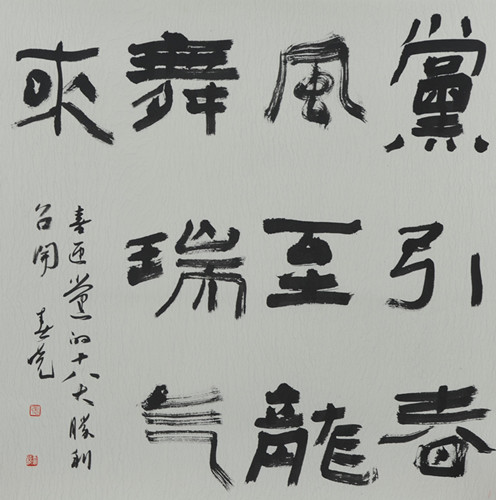 黨引春
風至龍
舞瑞气
來
喜迎党的十八大勝利
召開